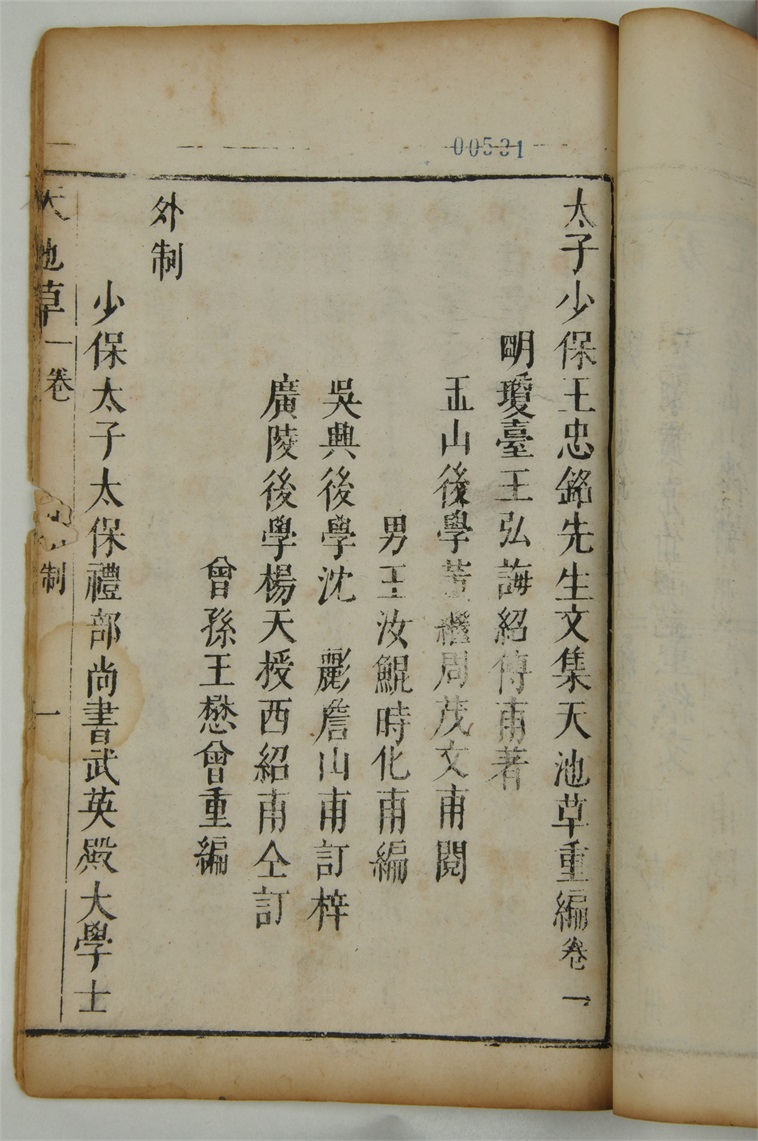 00531
太子少保王忠銘先生文集天池草重編卷一
明瓊臺王弘誨紹傳甫著
五山後學董繼周茂文甫閱
男王汝鯤時化甫編
吳興後學沈 彪詹山甫訂梓
廣陵後學楊天授西紹甫仝訂
曾孫王懋曾重編
外制
少保太子太保禮部尚書武英殿大學士
天池草一卷
制
一